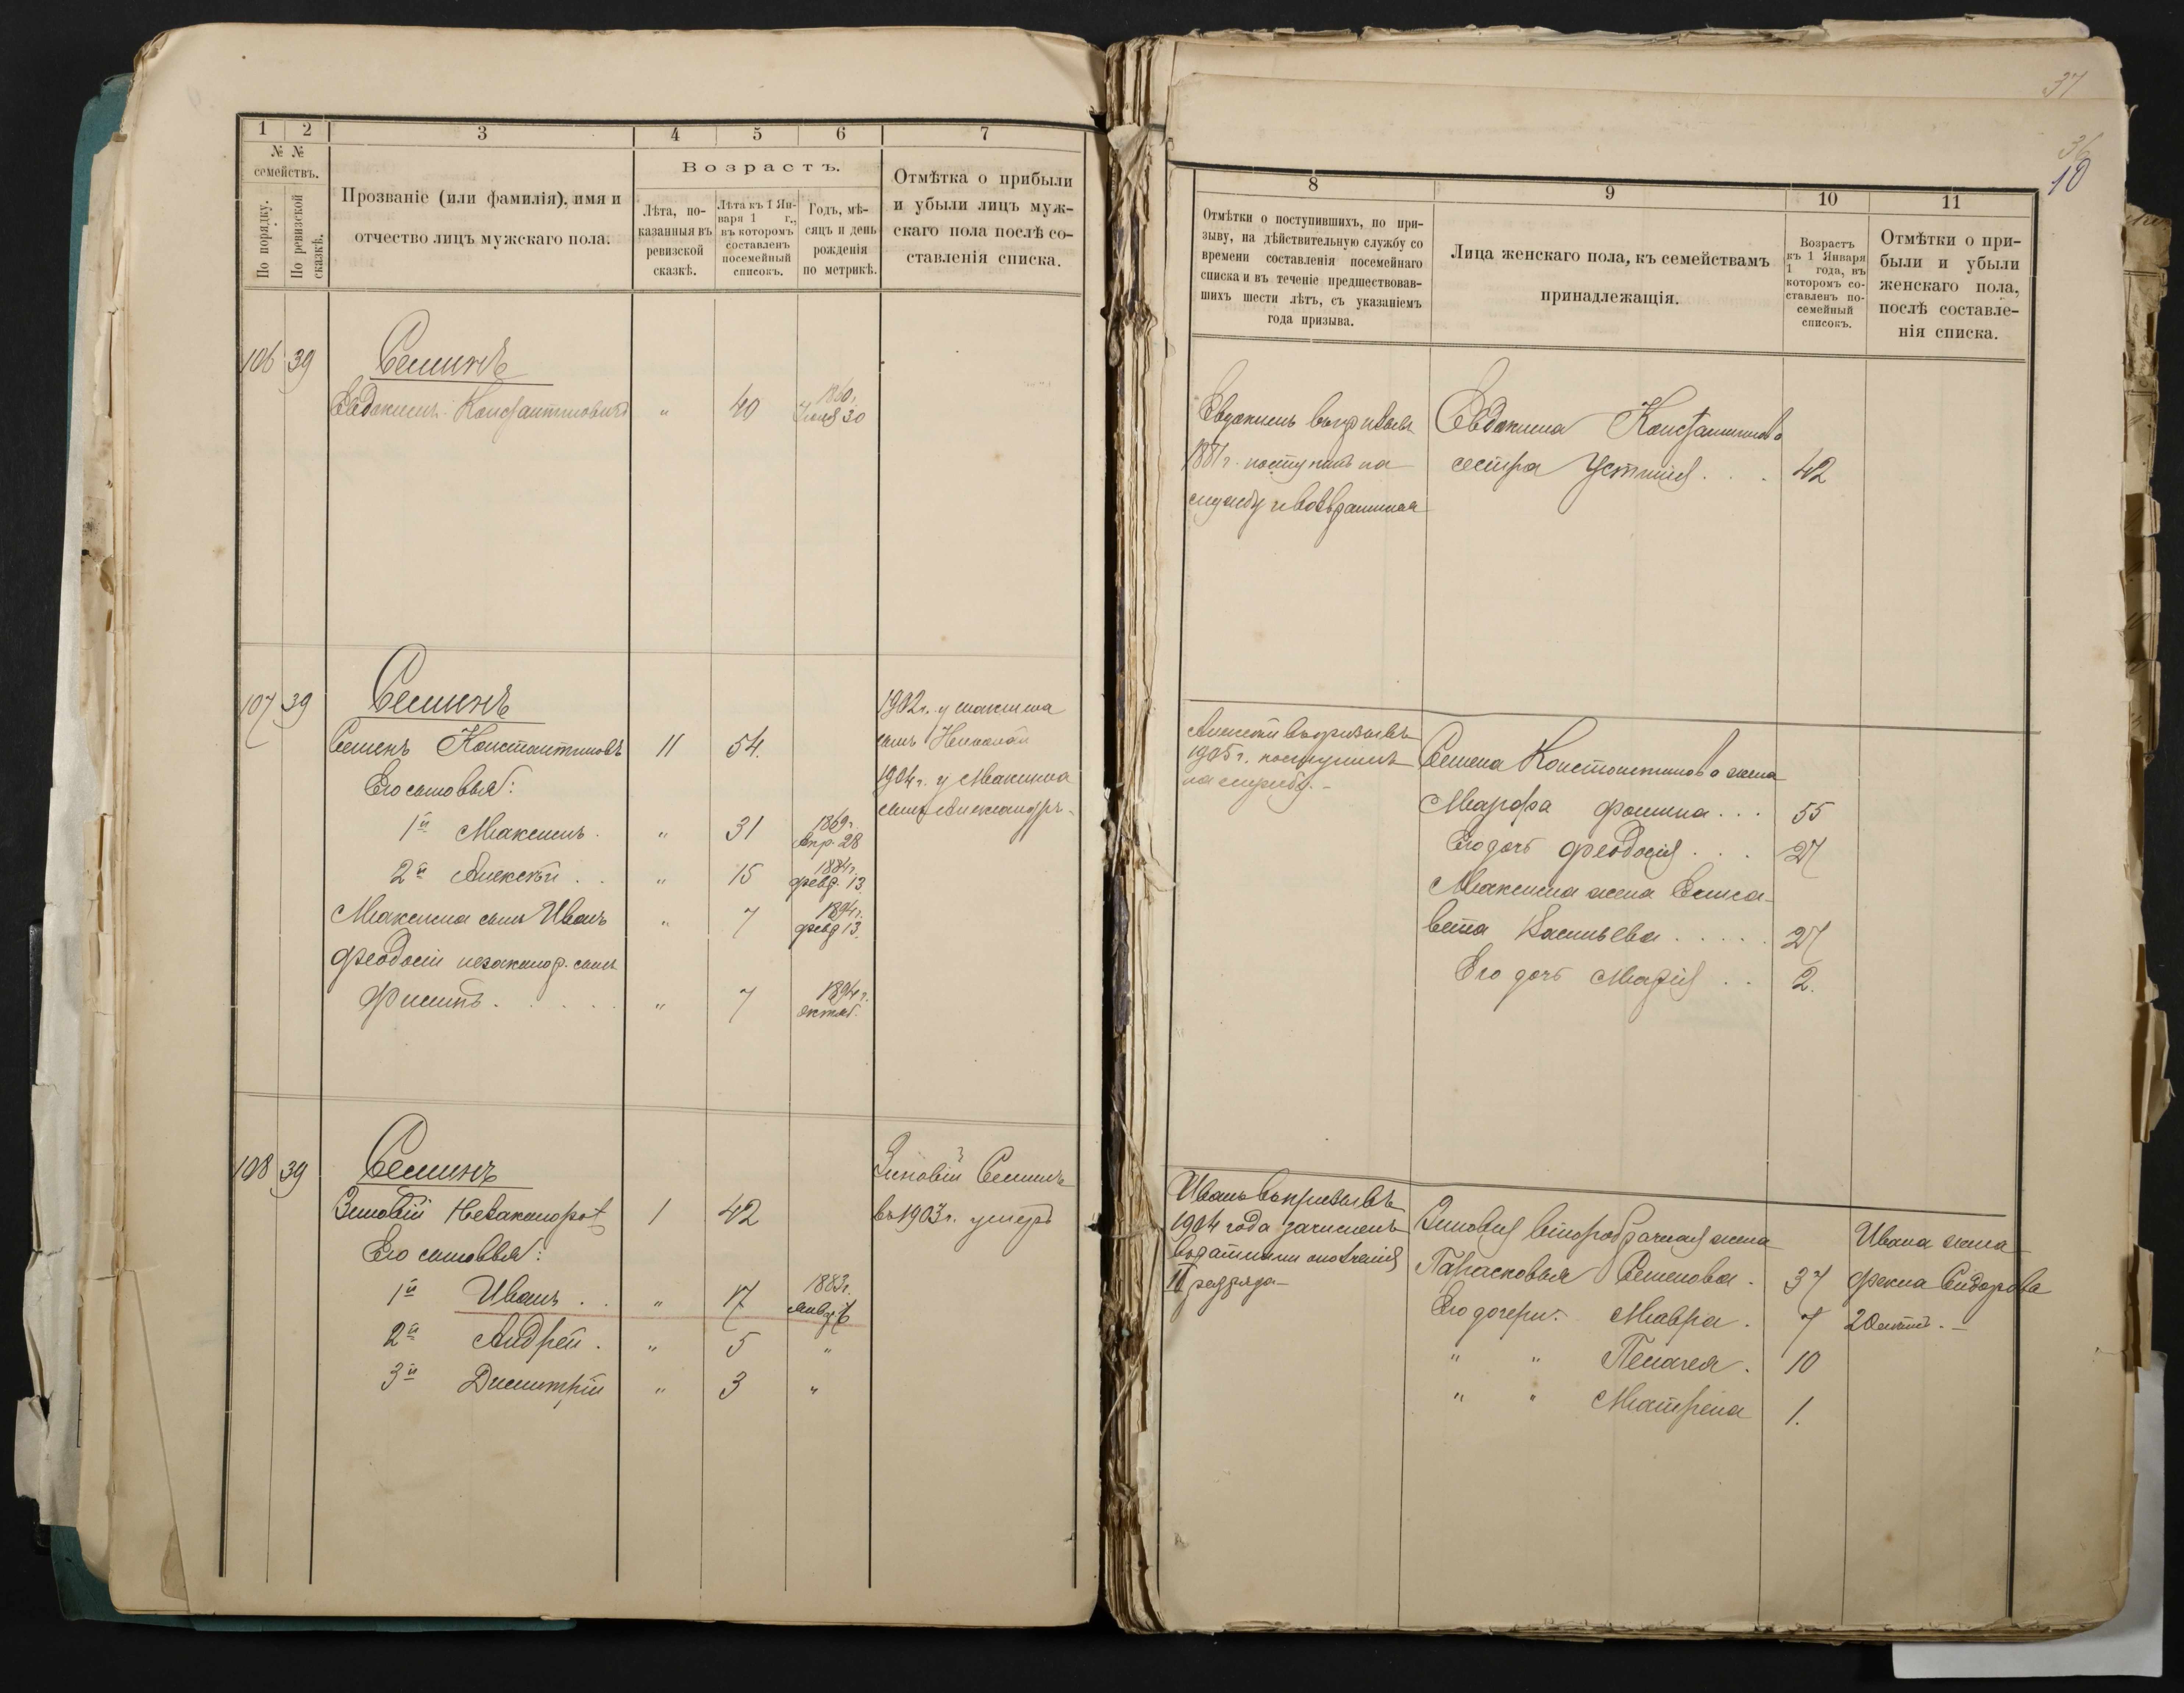 1 2 3 4 5 6 7
№ № семействъ.
По порядку.
По ревизской сказкѣ.
Прозваніе (или фамилія), имя и
отчество лицъ мужскаго пола.
Возрастъ.
Лѣта, по-
казанныя въ
ревизской
сказкѣ.
Лѣта къ 1 Ян-
варя 1 г.,
въ которомъ
составленъ
посемейный
списокъ.
Годъ, мѣ-
сяцъ и день
рожденія
по метрикѣ.
Отмѣтка о прибыли
и убыли лицъ муж-
скаго пола послѣ со-
ставленія списка.
106 39 Семинъ
Евдокимъ Константиновъ " 40 1860г.
30
107 39 Семинъ
Семенъ Константиновъ 11 54.
Его сыновья:
1й Максимъ. " 31 1869г.
Апр. 28
2й Алексѣй . . " 15 1884г.
февр. 13.
Максима сынъ Иванъ " 7 1894г.
февр 13.
Феодосіи незаконор. сынъ
Филипъ. . . . . " 7 1894г.
октяб.
1902г. у максима
сынъ Николай
1904г. у Максима
сынъ Александръ.
108 39 Семинъ
Зиновій Незаконорот 1 42
Его сыновья:
1й Иванъ . . " 17 1883г.
Янв. 6
2й Андрей . " 5 "
3й Димитрій " 3 "
Зиновій Семинъ
въ 1903г. умеръ
37
36
10
8 9 10 11
Отмѣтки о поступившихъ, по при-
зыву, на дѣйствительную службу со
времени составленія посемейнаго
списка и въ теченіе предшествовав-
шихъ шести лѣтъ, съ указаніемъ
года призыва.
Лица женскаго пола, къ семействамъ
принадлежащія.
Возрастъ
къ 1 Января
1 года, въ
которомъ со-
ставленъ по-
семейный
списокъ.
Отмѣтки о при-
были и убыли
женскаго пола,
послѣ составле-
нія списка.
Евдокимъ въ призывъ
1881г. поступилъ на
службу и возвратился
Евдокима Константинова
сестра Устинія . . . 42
Алексѣй въ призывъ
1905г. поступилъ
на службу. –
Семена Константинова жена
Марфа Фомина . . . 55
Его дочь Феодосія . . . 27
Максима жена Елиса-
вета Васильева . . . . . 27
Его дочь Марія . . 2.
Иванъ въ призывъ
1904 года зачисленъ
въ ратники ополченія
II разряда –
Зиновія второбрачная жена
Парасковья Семенова . 37
Его дочери: Мавра . 7
" " Пелагея . 10
" " Матрена 1.
Ивана жена
Фекла Сидорова
20 лѣтъ. –